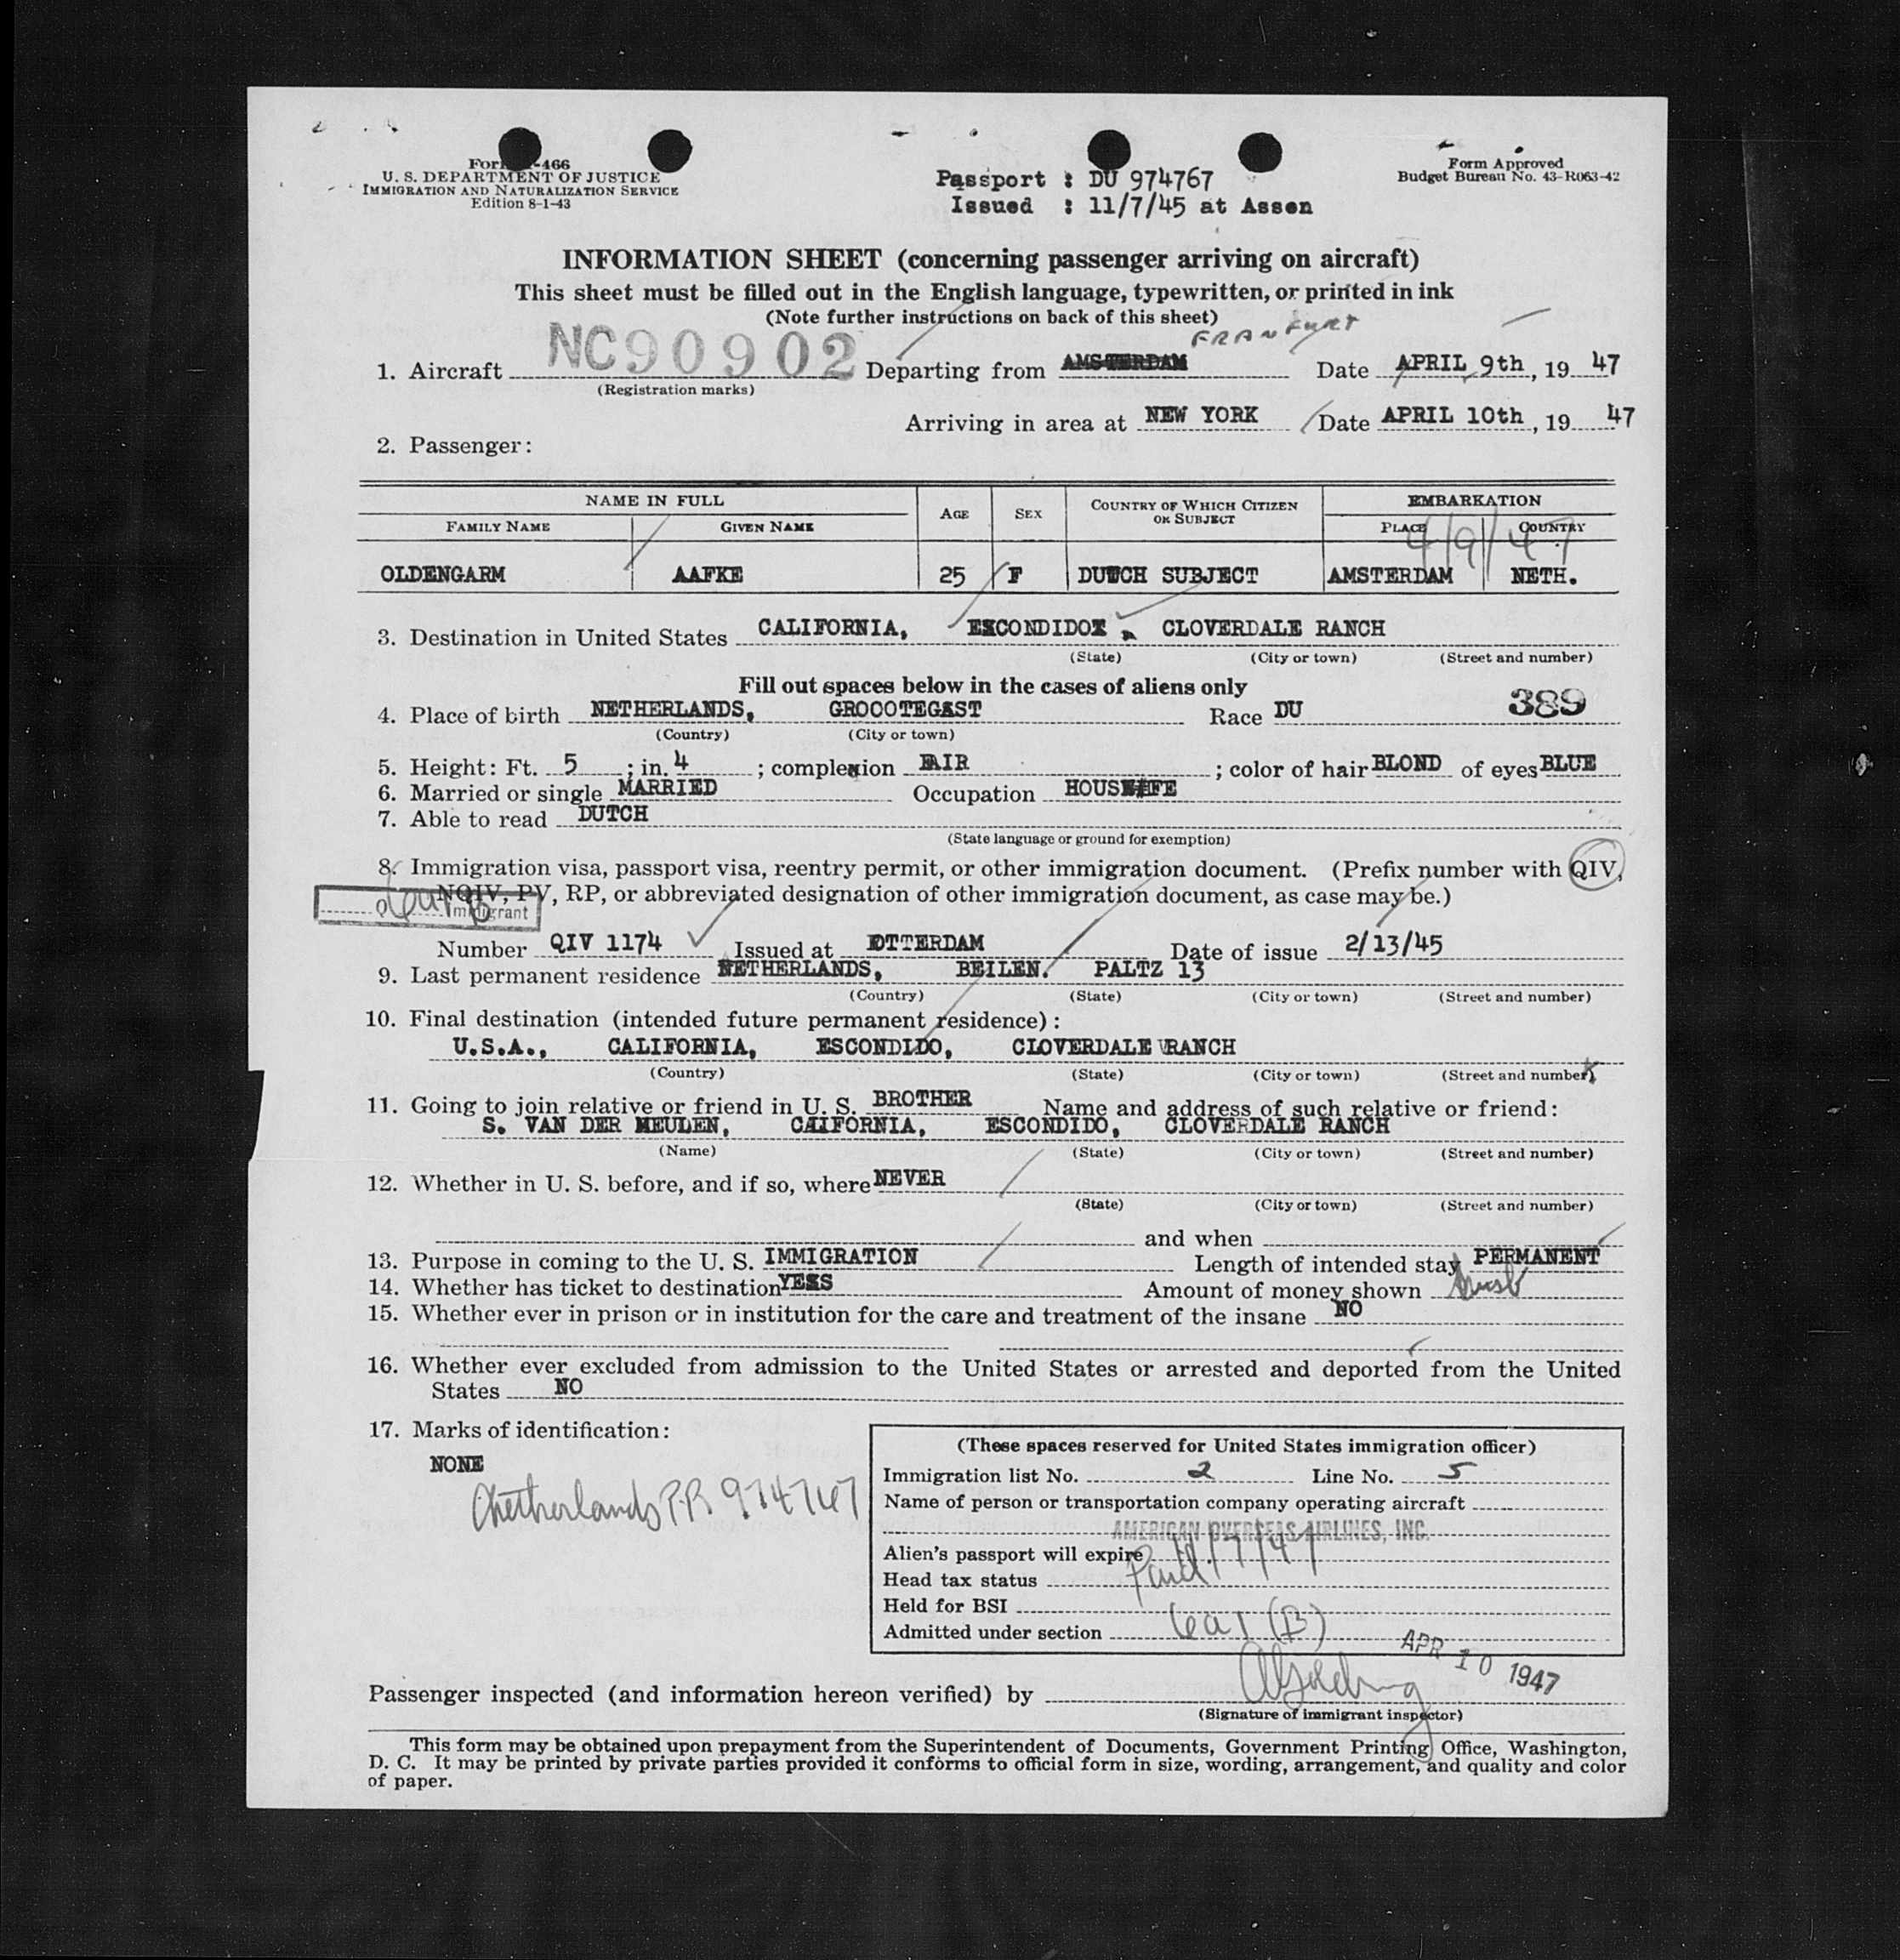 Form I-466
U. S. DEPARTMENT OF JUSTICE
IMMIGRATION AND NATURALIZATION SERVICE
Edition 8-1-43
Passport : DU 974767
Issued : 11/7/45 at Assen
Form Approved
Budget Bureau No. 43-R063-42
INFORMATION SHEET (concerning passenger arriving on aircraft)
This sheet must be filled out in the English language, typewritten, or printed in ink
(Note further instructions on back of this sheet)
FRANKFURT
1. Aircraft NC90902 Departing from AMSTERDAM Date APRIL 9th, 19 47
(Registration marks)
Arriving in area at NEW YORK Date APRIL 10th, 19 47
2. Passenger:
NAME IN FULL AGE SEX COUNTRY OF WHICH CITIZEN OR SUBJECT EMBARKATION
FAMILY NAME GIVEN NAME PLACE COUNTRY
4/9/47
OLDENGARM AAFKE 25 F DUTCH SUBJECT AMSTERDAM NETH.
3. Destination in United States CALIFORNIA, ESCONDIDO, CLOVERDALE RANCH
(State) (City or town) (Street and number)
Fill out spaces below in the cases of aliens only
389
4. Place of birth NETHERLANDS, GROOTEGAST Race DU
(Country) (City or town)
5. Height: Ft. 5 ; in. 4 ; complexion FAIR ; color of hair BLOND of eyes BLUE
6. Married or single MARRIED Occupation HOUSEWIFE
7. Able to read DUTCH
(State language or ground for exemption)
8. Immigration visa, passport visa, reentry permit, or other immigration document. (Prefix number with QIV,
NQIV, PV, RP, or abbreviated designation of other immigration document, as case may be.)
Immigrant
Number QIV 1174 Issued at OTTERDAM Date of issue 2/13/45
9. Last permanent residence NETHERLANDS, BEILEN. PALTZ 13
(Country) (State) (City or town) (Street and number)
10. Final destination (intended future permanent residence):
U.S.A., CALIFORNIA, ESCONDIDO, CLOVERDALE RANCH
(Country) (State) (City or town) (Street and number)
11. Going to join relative or friend in U. S. BROTHER Name and address of such relative or friend:
S. VAN DER MEULEN, CAIFORNIA, ESCONDIDO, CLOVERDALE RANCH
(Name) (State) (City or town) (Street and number)
12. Whether in U. S. before, and if so, where NEVER
(State) (City or town) (Street and number)
and when
13. Purpose in coming to the U. S. IMMIGRATION Length of intended stay PERMANENT
14. Whether has ticket to destination YES Amount of money shown
15. Whether ever in prison or in institution for the care and treatment of the insane NO
16. Whether ever excluded from admission to the United States or arrested and deported from the United
States NO
17. Marks of identification:
NONE
Netherlands P.P. 974767
(These spaces reserved for United States immigration officer)
Immigration list No. 2 Line No. 5
Name of person or transportation company operating aircraft
AMERICAN OVERSEAS AIRLINES, INC.
Alien's passport will expire 11/7/47
Head tax status Paid
Held for BSI
Admitted under section 6a1 (B)
APR 10 1947
Passenger inspected (and information hereon verified) by
(Signature of immigrant inspector)
This form may be obtained upon prepayment from the Superintendent of Documents, Government Printing Office, Washington,
D. C. It may be printed by private parties provided it conforms to official form in size, wording, arrangement, and quality and color
of paper.